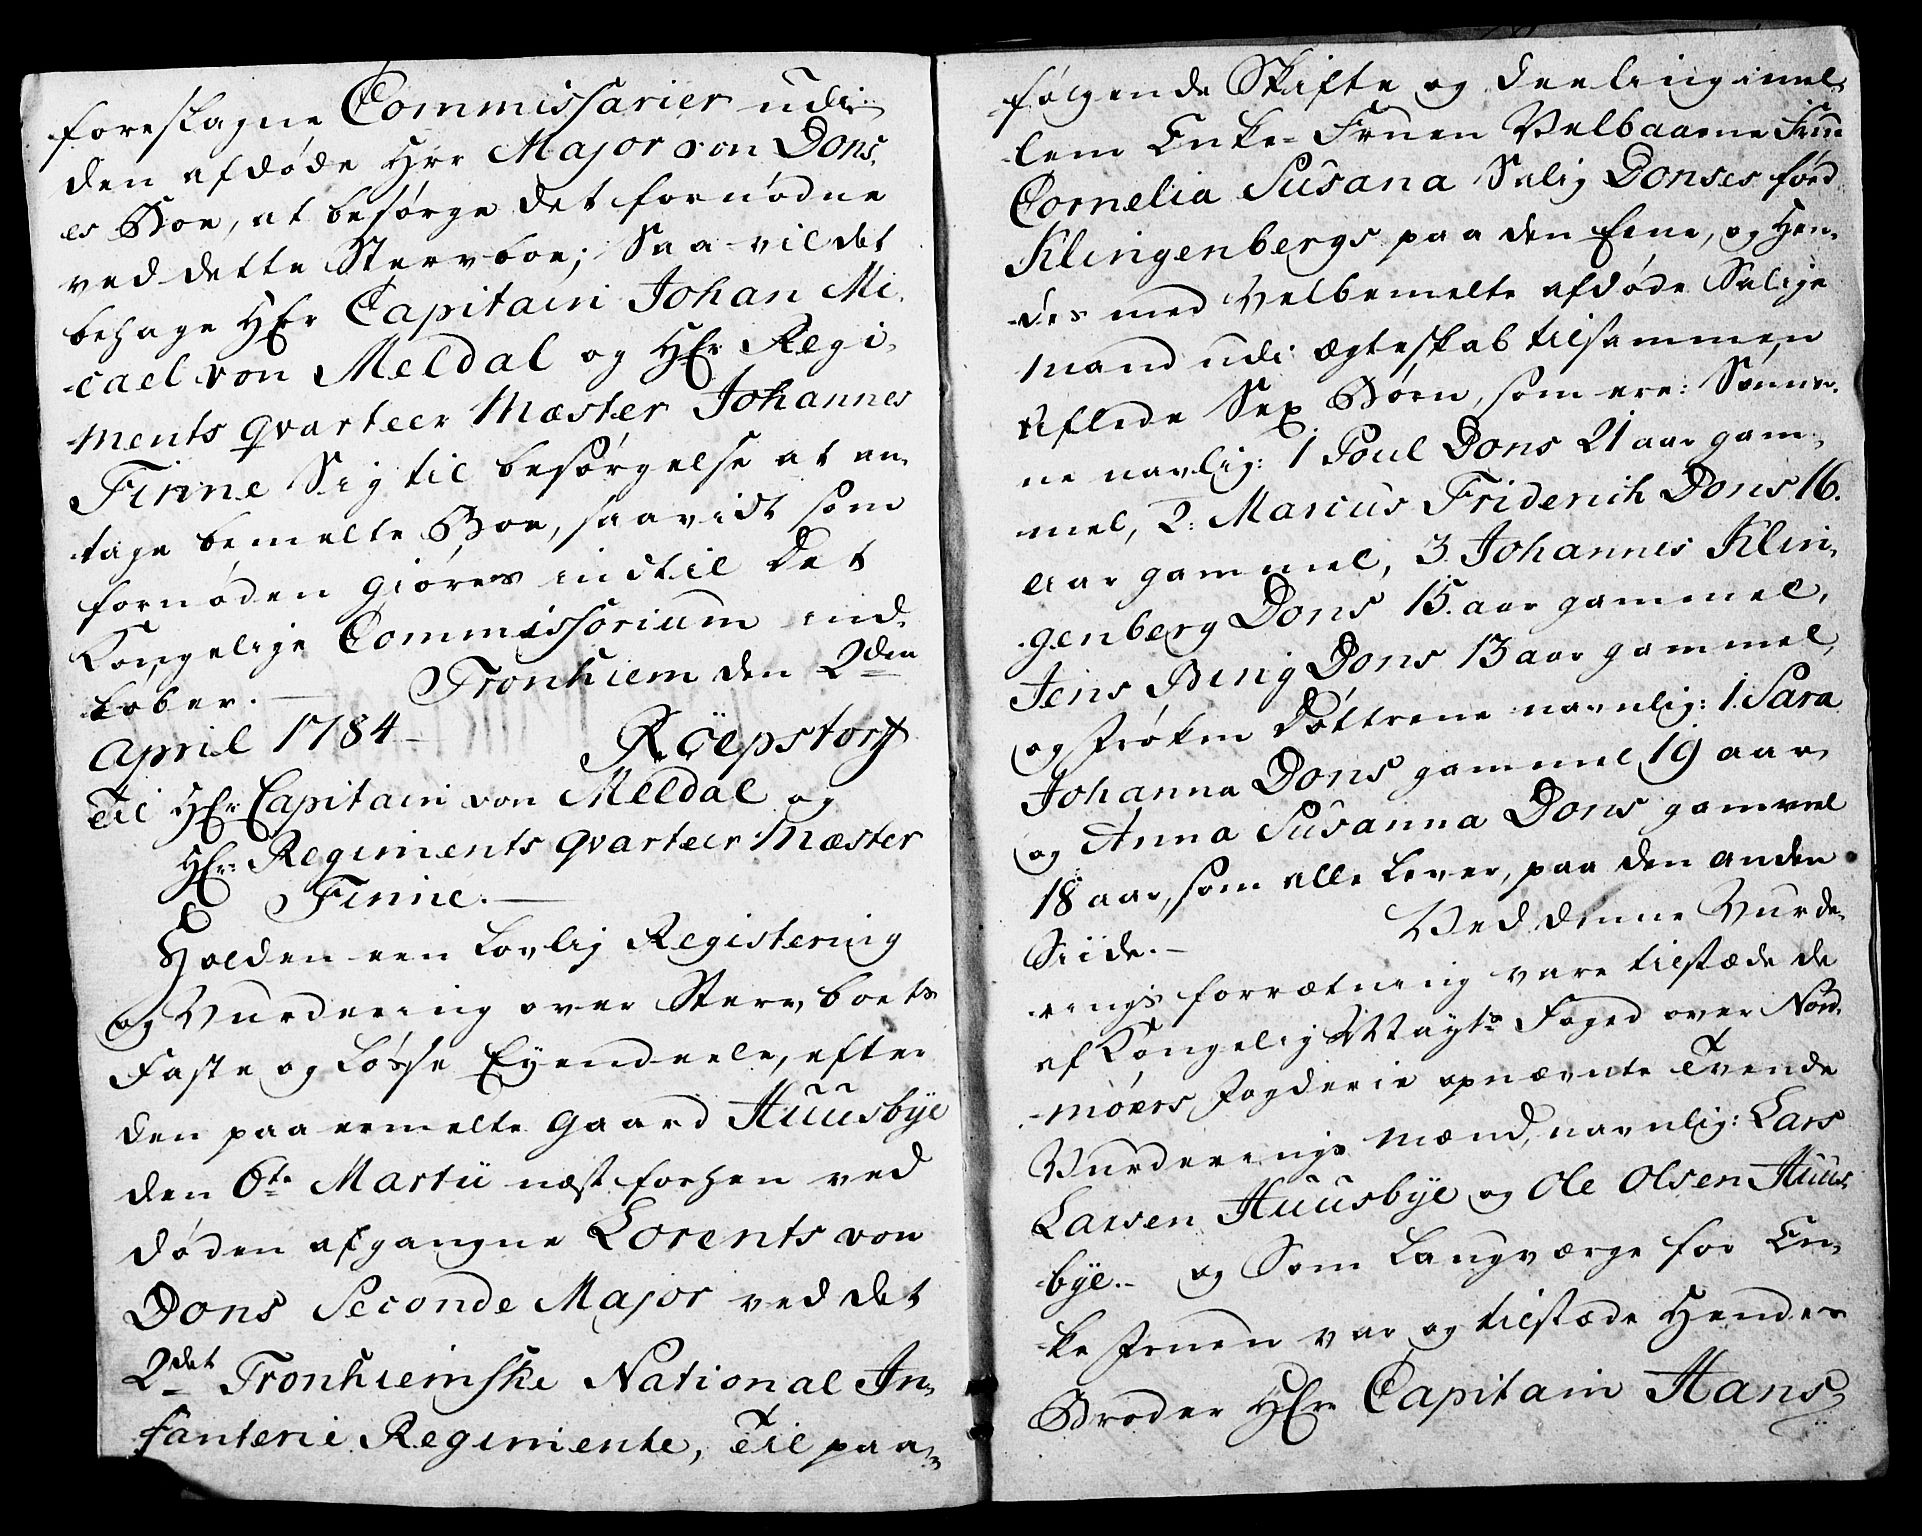 foreslagne Commissarier udi
den afdøde Hrr Major von Dons,
es Boe, at besørge det fornødne
ved dette Stervboe; Saa vil det
behage HEr Capitain Johan Mi,
cael von Meldal og HEr Regi,
ments qvarteer Mæster Johannes
Finne Sig til besørgelse at an,
tage bemelte Boe, saavidt som
fornøden giøres indtil Det
Kongelige Commissorium ind,
løber. — Tronhiem den 2den
April 1784 — Röepstorff
Til HEr Capitain von Meldal og
HEr: Regiments qvarteer Mæster
Finne. —
Holden een Lovlig Registering
og Vurdering over Stervboets
Faste og Løsse Eyendeele, efter
den paa ermelte Gaard Huusbye
den 6te Martii næstforhen ved
døden afgangne Lorents von
Dons Seconde Major ved det
2det Tronhiemske National In,
fanterie Regimente, Til paa,
følgende Skifte og Deeling imel,
lem Enke-Fruen Velbaarne Frue
Cornelia Susana Salig Donses fød
Klingenbergs paa den Eene, og Hen,
des med Velbemelte afdøde Salige
Mand udi ægteskab tilsammen
aflede Sex Børn, som ere: Sønner,
ne navlig: 1 Poul Dons 21 aar gam,
mel, 2: Marcus Friderich Dons 16.
aar gammel, 3. Johannes Klin,
genberg Dons 15. aar gammel,
Jens Bing Dons 13 aar gammel,
og Frøken Døttrene navnlig: 1. Sara
Johanna Dons gammel 19 aar
og Anna Susanna Dons gammel
18 aar, som alle Lever, paa den anden
Siide. — Ved denne Vurde,
rings forrætning vare tilstæde de
af Kongelig Mayts Foged over Nord,
møers Fogderie opnævnte Tvende
Vurderings Mænd, navnlig: Lars
Larsen Huusbye og Ole Olsen Huus,
bye. — og Som Laugværge for En,
ke Fruen var og tilstæde Hendes
Broder HEr Capitain Hans